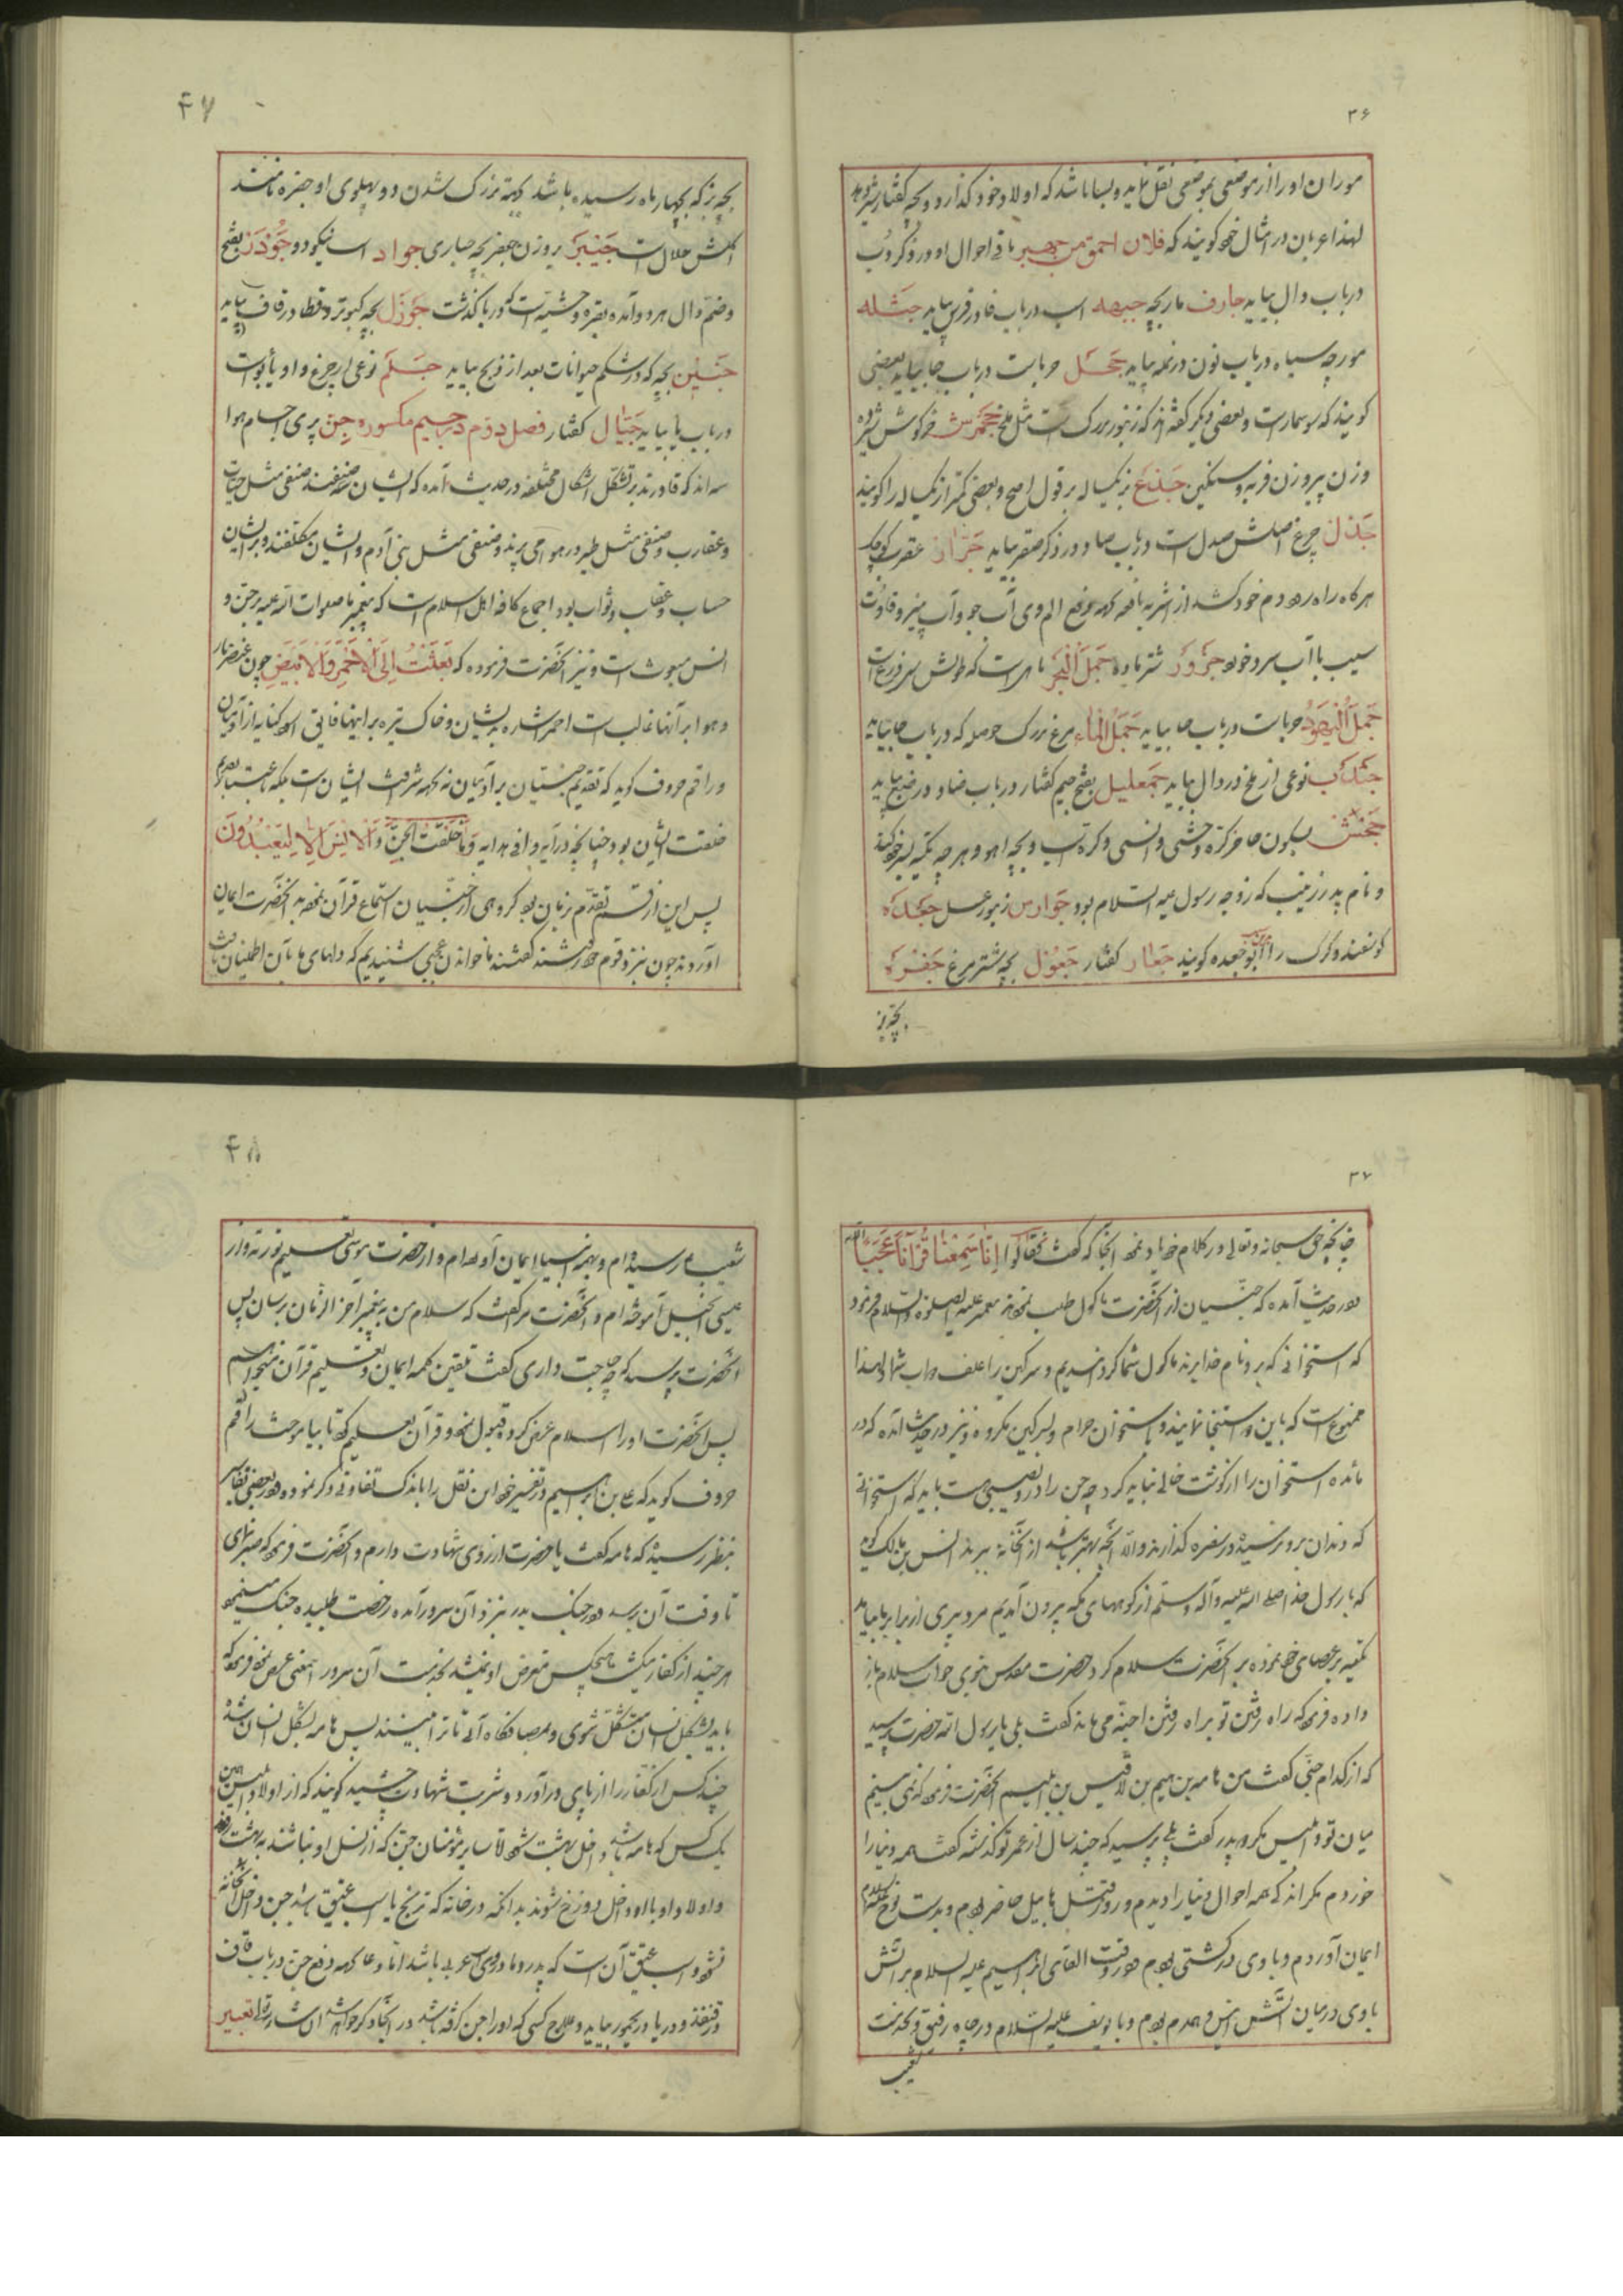 ۳۶
موران او را از موضعی بموضعی نقل نماید و بسا باشد که اولاد خود گذارد و بچه کفتار شیر دهد
لهذا عربان در امثال خود گویند که فلان احمق من جهیر باقی احوال او در ذکر دب
در باب دال بیاید جارف مار بچه جبهه اسب در باب فا در فرس بیاید جثله
مورچه سیاه در باب نون در نمله بیاید جحل حرباست در باب حا بیاید بعضی
گویند که سوسمار است و بعضی دیگر گفته‌اند که زنبور بزرک است مثل ملخ جحمرش خرگوش شیرده
و زن پیر و زن فربه و سنگین جذع بز یکساله بر قول اصح و بعضی کمتر از یکساله را گویند
جذل چرغ اصلش صدل است در باب صاد در ذکر صقر بیاید جراز عقرب کوچک
هرگاه راه رود دم خود کشد از اشربه نافعه که دفع الم وی آب جو و آب پنیر و قاوت
سیب با آب سرد خوردن جزور شتر ماده جمل البحر ماهی است که طولش سی ذرع است
جمل الیهود حرباست در باب حا بیاید جمل الماء مرغ بزرک حوصله که در باب حا بیاید
جندب نوعی از ملخ در دال بیاید جمعلیل بفتح جیم کفتار در باب ضاد در ضبع بیاید
جحش بسکون حا خر کره وحشی و انسی و کره اسب و بچه آهو و هرچه تکیه بر خود کند
و نام پدر زینب که زوجه رسول علیه السلام بود جوارس زنبور عسل جعده
گوسفند و گرک را ابو جعده گویند جعار کفتار جعول بچه شتر مرغ جفره
بچه بز
۴۷
بچه بز که بچهار ماه رسیده باشد و بجهة بزرک شدن دو پهلوی او جفره نامند
اکلش حلال است جنبر بر وزن جعفر بچه حباری جواد اسب نیکو دو جوذر بفتح
و ضم ذال هر دو آمده بقره وحشیه است که در با گذشت جوزل بچه کبوتر و قطا در قاف بیاید
جنین بچه که در شکم حیوانات بعد از ذبح بیاید جلم نوعی از چرغ و او یأیوست
در باب یا بیاید جیأل کفتار فصل دوم در جیم مکسوره جن پری اجسام هوا
‌اند که قادرند بر تشکل اشکال مختلفه در حدیث آمده که ایشان سه صنفند صنفی مثل حیات
و عقارب و صنفی مثل طیر در هوا می پرند و صنفی مثل بنی آدم و ایشان مکلفند و بر ایشان
حساب و عقاب و ثواب بود و اجماع کافه اهل اسلام است که پیغمبر ما صلوات الله علیه بر جن و
انس مبعوث است و نیز آنحضرت فرموده که بعثت الی الاحمر و الابیض چون عنصر نار
و هوا بر آنها غالب است احمر اشاره بدیشان و خاک تیره بر اینها فایق ابیض کنایه از آدمیان
و راقم حروف گوید که تقدیم جنیان بر آدمیان نه بجهة شرافت ایشان است بلکه باعتبار تقدیم
خلقت ایشان بود چنانچه در آیه وافی هدایه و ما خلقت الجن و الانس الا لیعبدون
پس این از قسم تقدم زمان بود گروهی از جنیان استماع قرآن نموده به آنحضرت ایمان
آوردند چون نزد قوم خود رفتند گفتند ما خواندن عجبی شنیدیم که دلهای ما بآن اطمینان یافت
۳۷
چنانچه حق سبحانه و تعالی در کلام خود یاد نموده آنجا که گفت فقالوا انا سمعنا قرآنا عجبا
و در حدیث آمده که جنیان از آنحضرت ماکول طلب نمودند پیغمبر علیه الصلوة و السلام فرمود
که استخوانی که بر او نام خدا برند ماکول شما گردانیدیم و سرگین را علف دواب شما و لهذا
ممنوع است که باین دو استنجا نمایند و باستخوان حرام و بسرگین مکروه و نیز در حدیث آمده که در
مائده استخوان را از گوشت خالی نباید کرد چه جن را در او نصیبی هست باید که استخوانی
که دندان بر او نرسیده در سفره گذارند و الا آنچه بهتر باشد از آنخانه ببرند انس بن مالک گوید
که با رسول خدا صلی الله علیه و آله و سلم از کوههای مکه بیرون آمدیم مرد پیری از برابر ما بیامد
تکیه بر عصای خود نموده بر آنحضرت سلام کرد حضرت مقدس نبوی جواب سلام باز
داده فرمود که راه رفتن تو براه رفتن اجنه می ماند گفت بلی یا رسول الله حضرت پرسید
که از کدام جنی گفت من هامه بن هیم بن لاقیس بن ابلیسم آنحضرت فرمود که نمی بینم
میان تو و ابلیس مگر دو پدر گفت بلی پرسید که چند سال از عمر تو گذشته گفت همه دنیا را
خوردم مگر اندکی همه احوال دنیا را دیدم و روز قتل هابیل حاضر بودم و بدست نوح علیه السلام
ایمان آوردم و با وی در کشتی بودم و در وقت القای ابراهیم علیه السلام بر آتش
با وی در میان آتش انیس و همدم بودم و با یوسف علیه السلام در چاه رفیق و بخدمت
شعیب
۴۸
شعیب رسیده‌ام و بهمه انبیا ایمان آورده‌ام و از حضرت موسی تعلیم توریة و از
عیسی انجیل آموخته‌ام و آنحضرت مرا گفت که سلام من به پیغمبر آخر الزمان برسان پس
آنحضرت پرسید که چه حاجت داری گفت تلقین کلمه ایمان و تعلیم قرآن میخواهم
پس آنحضرت او را اسلام عرض کرد و قبول نمود و قرآن تعلیم کرد تا بیاموخت راقم
حروف گوید که علی بن ابراهیم در تفسیر خود این نقل را باندک تفاوتی ذکر نموده و در بعضی تفاسیر
بنظر رسیده که هامه گفت یا حضرت آرزوی شهادت دارم و آنحضرت فرمود که صبر نمای
تا وقت آن برسد در جنک بدر نزد آن سرور آمده رخصت طلبیده جنک مینمود
هر چند از کفار میکشت هیچکس متعرض او نمیشد بخدمت آن سرور اینمعنی عرض نمود فرمود که
باید بشکل انسان متشکل شوی و بمصاف‌گاه آئی تا ترا ببینند پس هامه بشکل انسان شده
چند کس از کفار را از پای در آورد و شربت شهادت چشید گویند که از اولاد ابلیس همین
یک کس که هامه باشد داخل بهشت شود لا سایر مؤمنان جن که از نسل او نباشند به بهشت روند
و اولاد او با او داخل دوزخ شوند بدانکه در خانه که ترنج یا اسب عتیق باشد جن داخل آنخانه
نشود و اسب عتیق آن است که پدر و مادر وی عربی باشد اما دعا که دفع جن در باب قاف
در قنفذ و در یا در یحمور بیاید و علاج کسی که او را جن گرفته باشد در آنجا ذکر خواهد شد ان شاء الله تعبیر